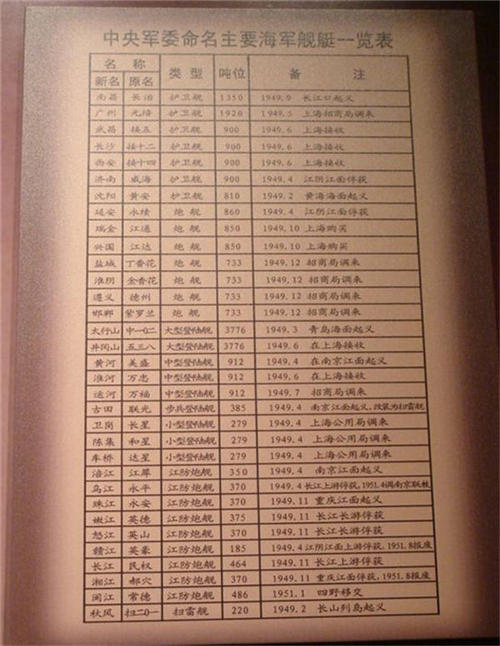 中央军委命名主要海军舰艇一览表
名 称 类 型 吨位 备 注
新名 原名
南昌 长治 护卫舰 1350 1949.9 长江口起义
广州 元培 护卫舰 1920 1949.5 上海招商局调来
武昌 接五 护卫舰 900 1949.6 上海接收
长沙 接十二 护卫舰 900 1949.6 上海接收
西安 接十四 护卫舰 900 1949.6 上海接收
济南 威海 护卫舰 900 1949.4 江阴江面俘获
沈阳 黄安 护卫舰 810 1949.2 黄海海面起义
延安 永绩 炮舰 860 1949.4 江阴江面俘获
瑞金 江通 炮舰 850 1949.10 上海购买
兴国 江达 炮舰 850 1949.10 上海购买
盐城 丁香花 炮舰 733 1949.12 招商局调来
淮阴 金香花 炮舰 733 1949.12 招商局调来
遵义 德州 炮舰 733 1949.12 招商局调来
邯郸 紫罗兰 炮舰 733 1949.12 招商局调来
太行山 中一0二 大型登陆舰 3776 1949.3 青岛海面起义
井冈山 五三八 大型登陆舰 3776 1949.6 在上海接收
黄河 美盛 中型登陆舰 912 1949.4 在南京江面起义
淮河 万忠 中型登陆舰 912 1949.6 在上海接收
运河 万福 中型登陆舰 912 1949.7 招商局调来
古田 联光 步兵登陆舰 385 1949.4 南京江面起义,改装为扫雷舰
卫岗 长星 小型登陆舰 279 1949.4 上海公用局调来
陈集 和星 小型登陆舰 279 1949.4 上海公用局调来
车桥 达星 小型登陆舰 279 1949.4 上海公用局调来
涪江 江犀 江防炮舰 350 1949.4 南京江面起义
乌江 永平 江防炮舰 370 1949.4 长江上游俘获,1951.4调南京联校
珠江 永安 江防炮舰 370 1949.11 重庆江面起义
嫩江 英德 江防炮舰 375 1949.11 长江长游俘获
怒江 英山 江防炮舰 370 1949.11 长江长游俘获
赣江 英豪 江防炮舰 185 1949.4 江阴江面上游俘获,1951.8报废
长江 民权 江防炮舰 464 1949.11 长江上游俘获
湘江 郝穴 江防炮舰 370 1949.11 重庆江面俘获,1951.8报废
闽江 常德 江防炮舰 486 1951.1 四野移交
秋风 扫二0一 扫雷舰 220 1949.2 长山列岛起义